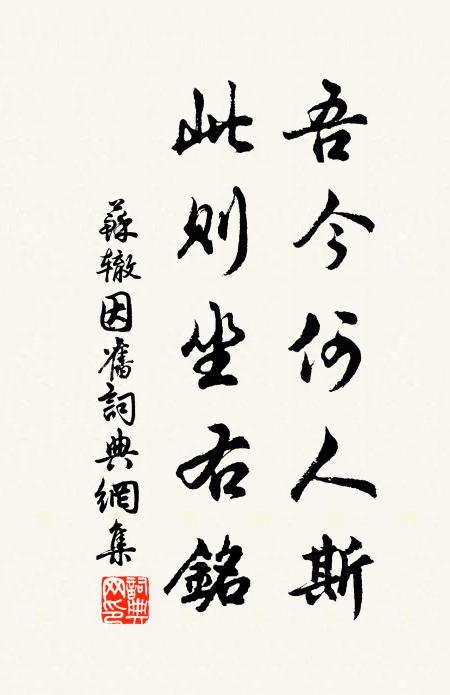 吾今何人斯
此則坐右銘
蘇辙因舊詞典網集
詞典网印